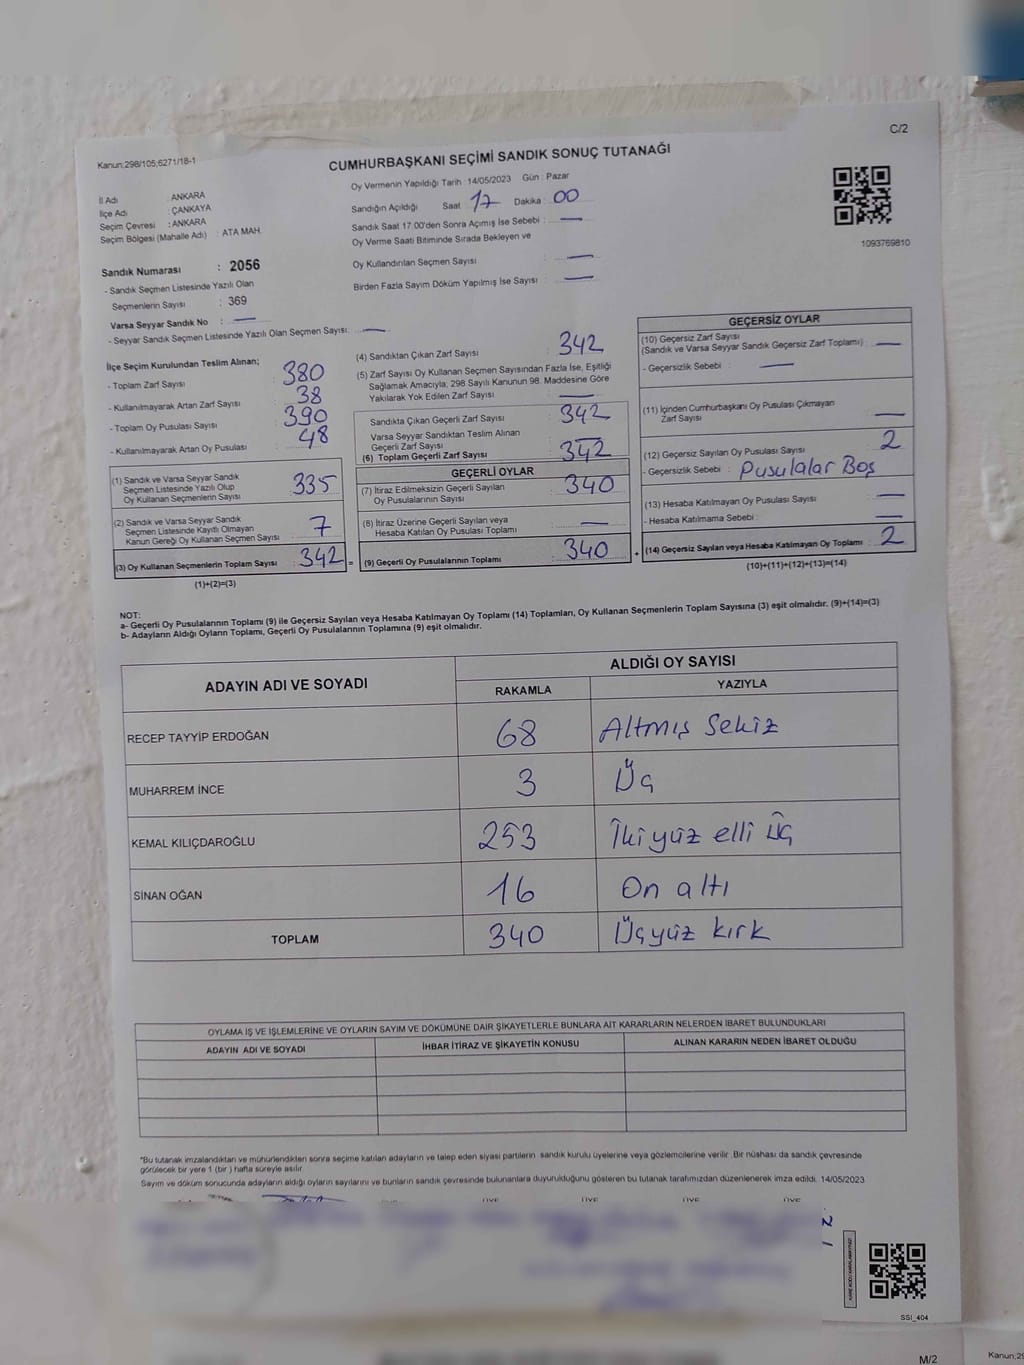 C/2
Kanun:298/105;6271/18-1
CUMHURBAŞKANI SEÇİMİ SANDIK SONUÇ TUTANAĞI
İl Adı : ANKARA
İlçe Adı : ÇANKAYA
Seçim Çevresi : ANKARA
Seçim Bölgesi (Mahalle Adı) : ATA MAH.
Oy Vermenin Yapıldığı Tarih : 14/05/2023 Gün : Pazar
Sandığın Açıldığı Saat 17 Dakika : 00
Sandık Saat 17.00'den Sonra Açımış İse Sebebi : —
Oy Verme Saati Bitiminde Sırada Bekleyen ve
Oy Kullandırılan Seçmen Sayısı : —
Birden Fazla Sayım Döküm Yapılmış İse Sayısı : —
1093769810
Sandık Numarası : 2056
- Sandık Seçmen Listesinde Yazılı Olan
Seçmenlerin Sayısı : 369
Varsa Seyyar Sandık No : —
- Seyyar Sandık Seçmen Listesinde Yazılı Olan Seçmen Sayısı: —
İlçe Seçim Kurulundan Teslim Alınan;
- Toplam Zarf Sayısı : 380
- Kullanılmayarak Artan Zarf Sayısı : 38
- Toplam Oy Pusulası Sayısı : 390
- Kullanılmayarak Artan Oy Pusulası : 48
(1) Sandık ve Varsa Seyyar Sandık
Seçmen Listesinde Yazılı Olup
Oy Kullanan Seçmenlerin Sayısı : 335
(2) Sandık ve Varsa Seyyar Sandık
Seçmen Listesinde Kayıtlı Olmayan
Kanun Gereği Oy Kullanan Seçmen Sayısı : 7
(3) Oy Kullanan Seçmenlerin Toplam Sayısı : 342 =
(1)+(2)=(3)
(4) Sandıktan Çıkan Zarf Sayısı : 342
(5) Zarf Sayısı Oy Kullanan Seçmen Sayısından Fazla İse, Eşitliği
Sağlamak Amacıyla, 298 Sayılı Kanunun 98. Maddesine Göre
Yakılarak Yok Edilen Zarf Sayısı : —
Sandıkta Çıkan Geçerli Zarf Sayısı : 342
Varsa Seyyar Sandıktan Teslim Alınan
Geçerli Zarf Sayısı : —
(6) Toplam Geçerli Zarf Sayısı : 342
GEÇERLİ OYLAR
(7) İtiraz Edilmeksizin Geçerli Sayılan
Oy Pusulalarının Sayısı : 340
(8) İtiraz Üzerine Geçerli Sayılan veya
Hesaba Katılan Oy Pusulası Toplamı : —
(9) Geçerli Oy Pusulalarının Toplamı : 340 +
GEÇERSİZ OYLAR
(10) Geçersiz Zarf Sayısı
(Sandık ve Varsa Seyyar Sandık Geçersiz Zarf Toplamı) : —
- Geçersizlik Sebebi : —
(11) İçinden Cumhurbaşkanı Oy Pusulası Çıkmayan
Zarf Sayısı : —
(12) Geçersiz Sayılan Oy Pusulası Sayısı : 2
- Geçersizlik Sebebi : Pusulalar Boş
(13) Hesaba Katılmayan Oy Pusulası Sayısı : —
- Hesaba Katılmama Sebebi : —
(14) Geçersiz Sayılan veya Hesaba Katılmayan Oy Toplamı : 2
(10)+(11)+(12)+(13)=(14)
NOT:
a- Geçerli Oy Pusulalarının Toplamı (9) ile Geçersiz Sayılan veya Hesaba Katılmayan Oy Toplamı (14) Toplamları, Oy Kullanan Seçmenlerin Toplam Sayısına (3) eşit olmalıdır. (9)+(14)=(3)
b- Adayların Aldığı Oyların Toplamı, Geçerli Oy Pusulalarının Toplamına (9) eşit olmalıdır.
ADAYIN ADI VE SOYADI ALDIĞI OY SAYISI
RAKAMLA YAZIYLA
RECEP TAYYİP ERDOĞAN 68 Altmış Sekiz
MUHARREM İNCE 3 Üç
KEMAL KILIÇDAROĞLU 253 İkiyüz elli üç
SİNAN OĞAN 16 On altı
TOPLAM 340 Üçyüz kırk
OYLAMA İŞ VE İŞLEMLERİNE VE OYLARIN SAYIM VE DÖKÜMÜNE DAİR ŞİKAYETLERLE BUNLARA AİT KARARLARIN NELERDEN İBARET BULUNDUKLARI
ADAYIN ADI VE SOYADI İHBAR İTİRAZ VE ŞİKAYETİN KONUSU ALINAN KARARIN NEDEN İBARET OLDUĞU
*Bu tutanak imzalandıktan ve mühürlendikten sonra seçime katılan adayların ve talep eden siyasi partilerin sandık kurulu üyelerine veya gözlemcilerine verilir. Bir nüshası da sandık çevresinde
görülecek bir yere 1 (bir ) hafta süreyle asılır.
Sayım ve döküm sonucunda adayların aldığı oyların sayılarını ve bunların sandık çevresinde bulunanlara duyurulduğunu gösteren bu tutanak tarafımızdan düzenlenerek imza edildi. 14/05/2023
ÜYE ÜYE ÜYE ÜYE
SSİ_404
M/2
Kanun:29